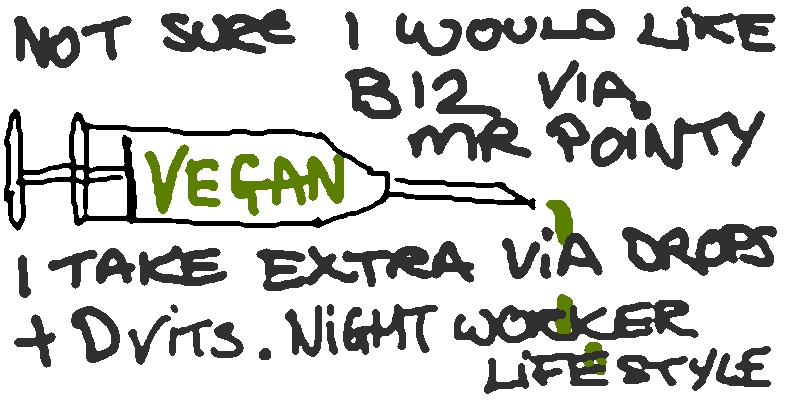 NOT SURE I WOULD LIKE
B12 VIA
MR POINTY
VEGAN
I TAKE EXTRA VIA DROPS
+ D VITS. NIGHT WORKER
LIFESTYLE